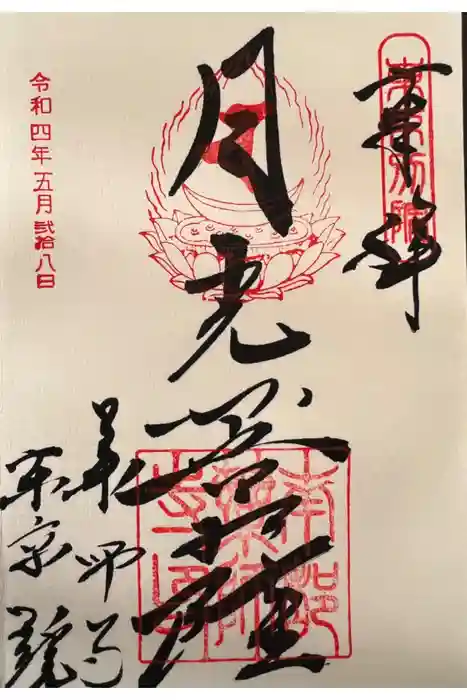 奉拝
東京別院
月光菩薩
南都
薬師
寺印
薬師寺
東京
令和四年五月弐拾八日